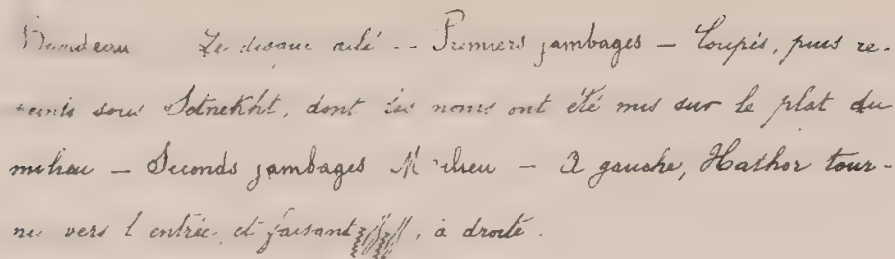 Bandeau Le disque ailé -- Premiers jambages – Coupés, puis re-
sous Setnekht, dont les noms ont été mis sur le plat du
milieu – Seconds jambages – A gauche, Hathor tour-
née vers l'entrée, et faisant , à droite.